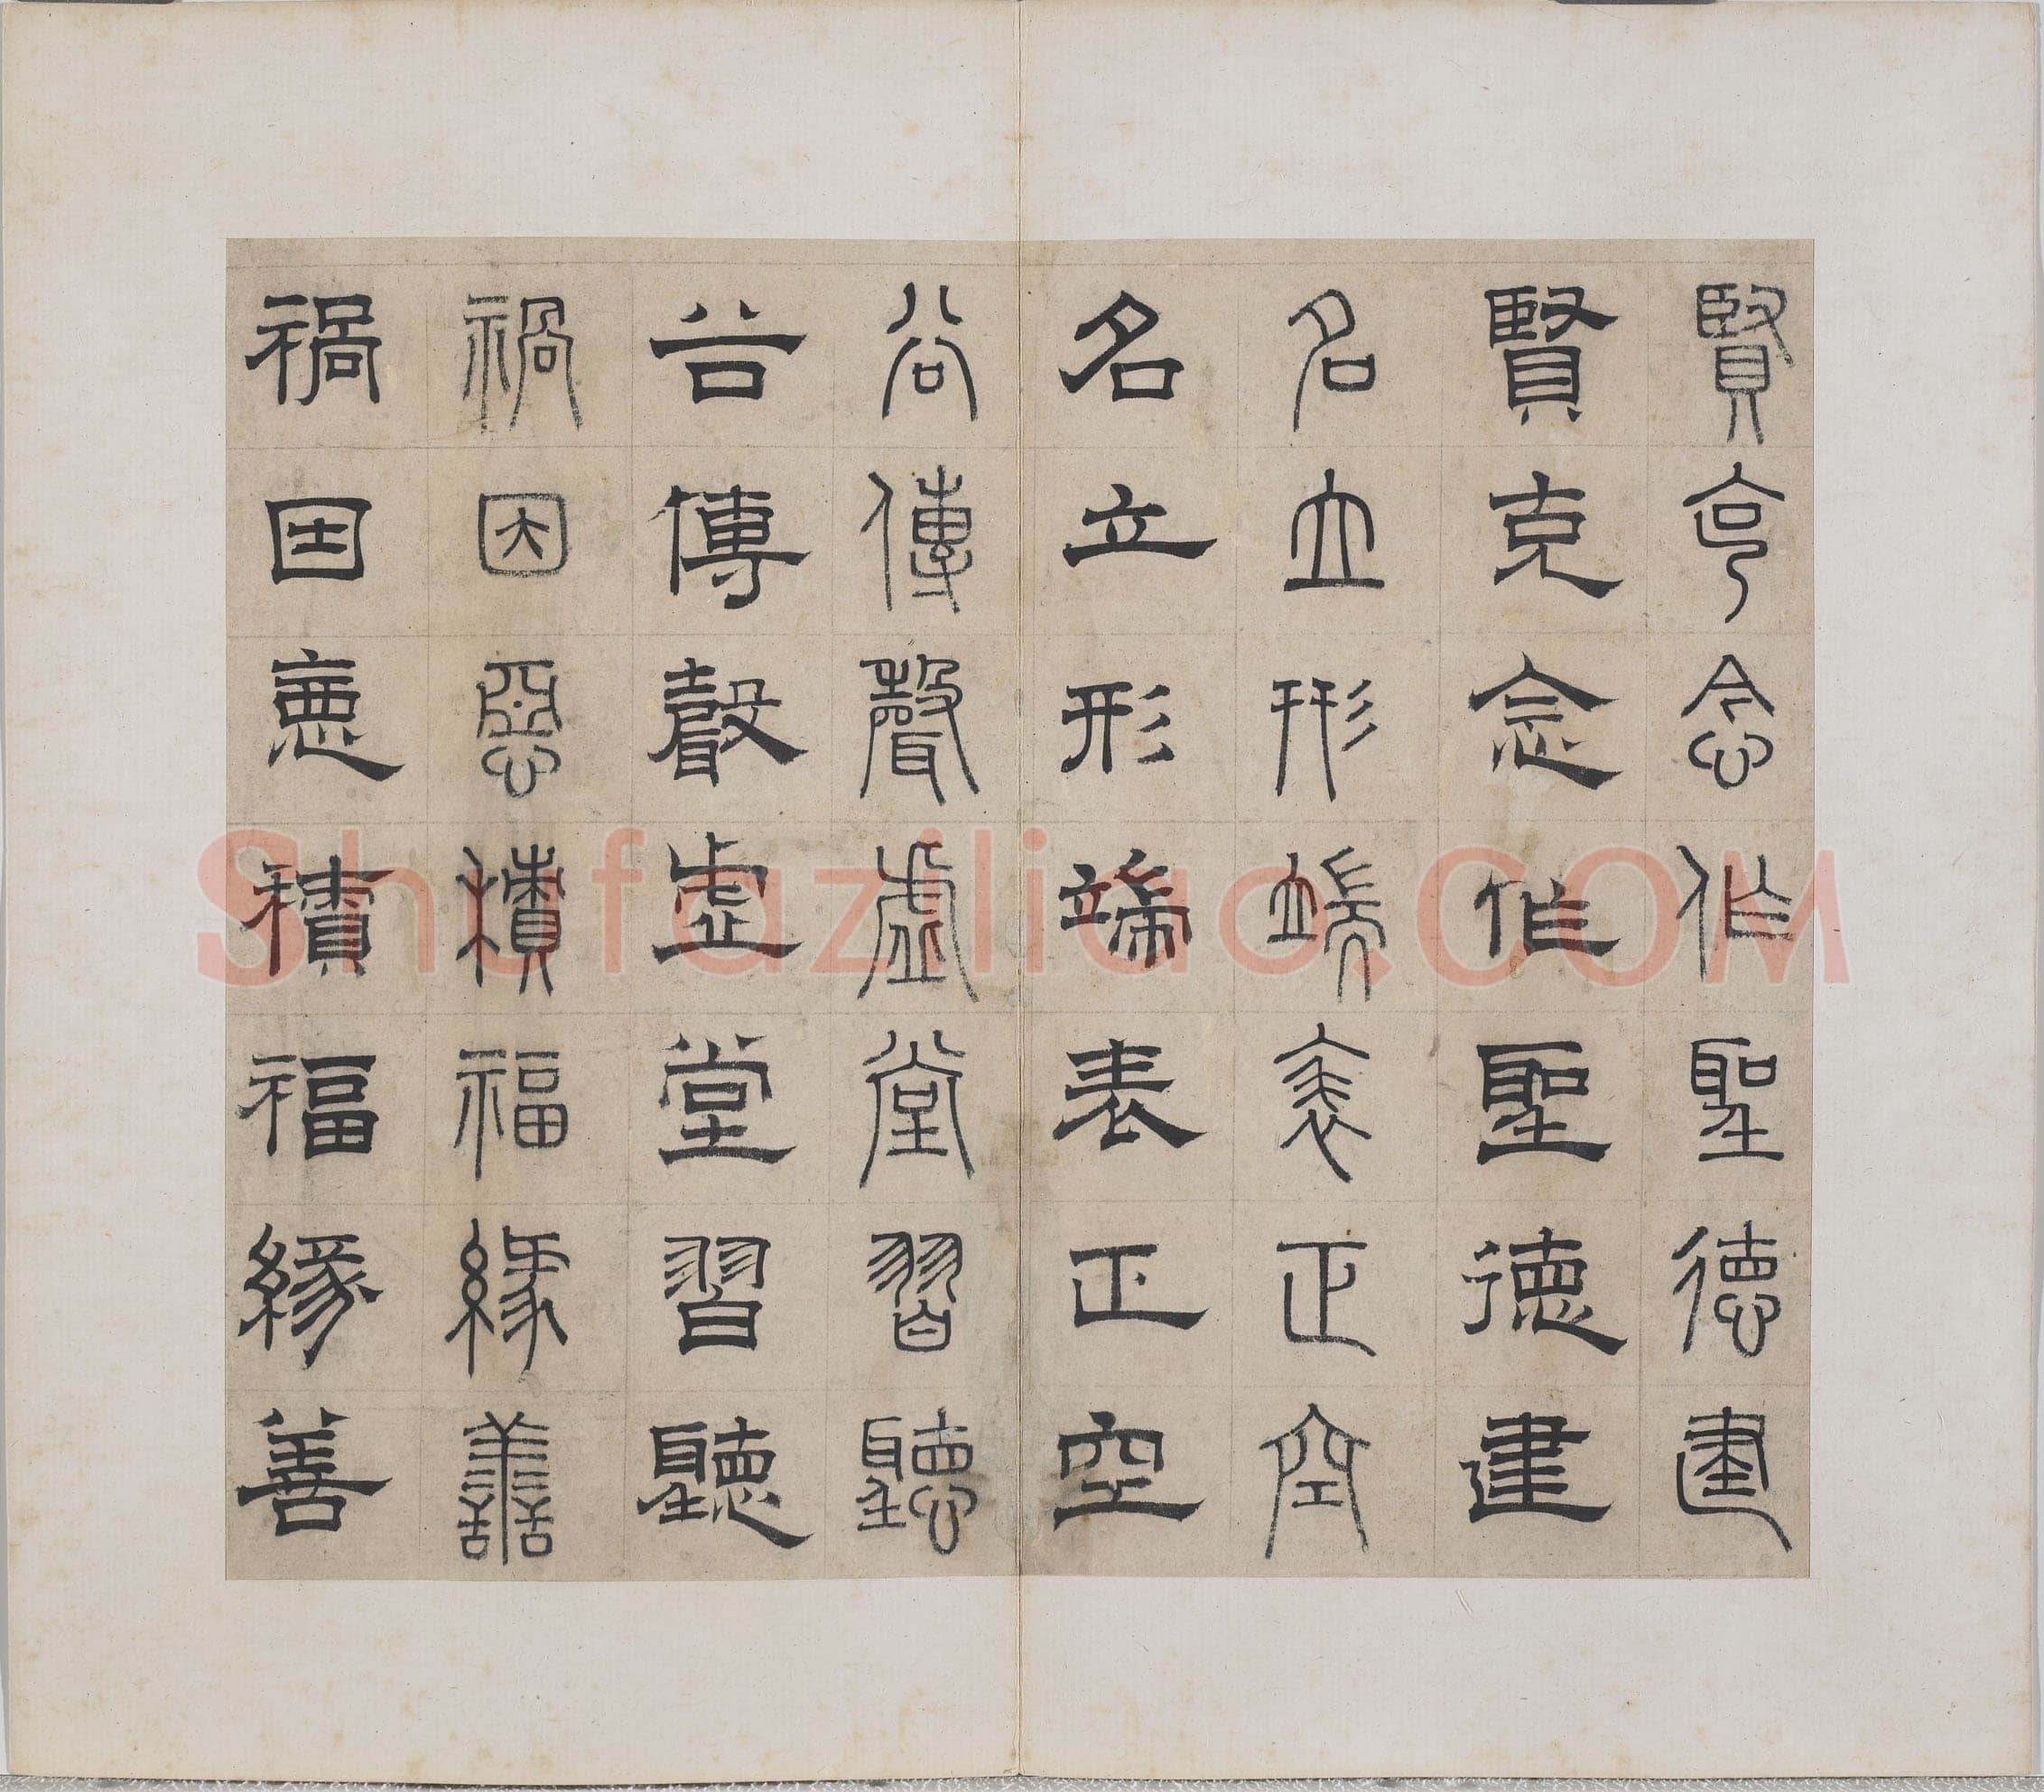 賢克念作聖德建
賢克念作聖德建
名立形端表正空
名立形端表正空
谷傳聲虛堂習聽
谷傳聲虛堂習聽
禍因惡積福緣善
禍因惡積福緣善
Shufaziliao.COM